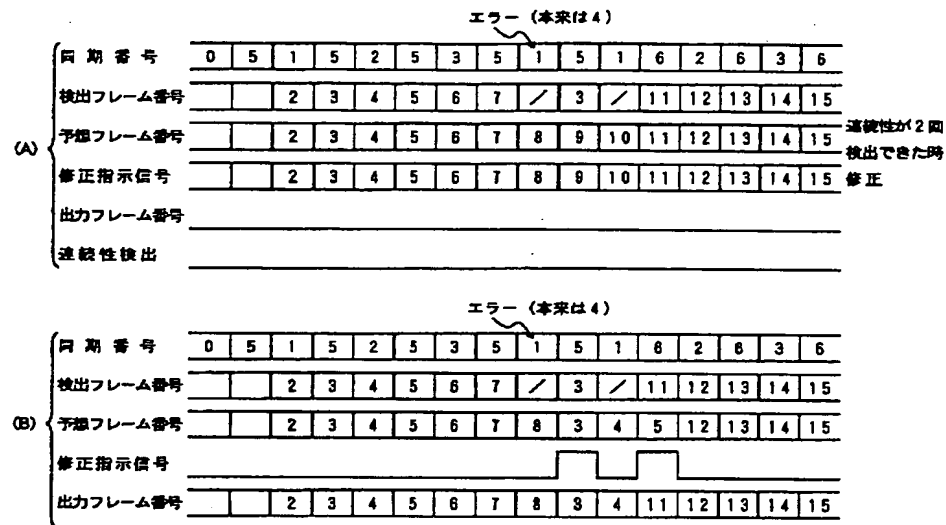 エラー (本来は4)
(A)
同期番号 0 5 1 5 2 5 3 5 1 5 1 6 2 6 3 6
検出フレーム番号 2 3 4 5 6 7 / 3 / 11 12 13 14 15
予想フレーム番号 2 3 4 5 6 7 8 9 10 11 12 13 14 15
修正指示信号 2 3 4 5 6 7 8 9 10 11 12 13 14 15
出力フレーム番号
連続性検出
連続性が2回
検出できた時
修正
エラー (本来は4)
(B)
同期番号 0 5 1 5 2 5 3 5 1 5 1 6 2 6 3 6
検出フレーム番号 2 3 4 5 6 7 / 3 / 11 12 13 14 15
予想フレーム番号 2 3 4 5 6 7 8 3 4 5 12 13 14 15
修正指示信号
出力フレーム番号 2 3 4 5 6 7 8 3 4 11 12 13 14 15